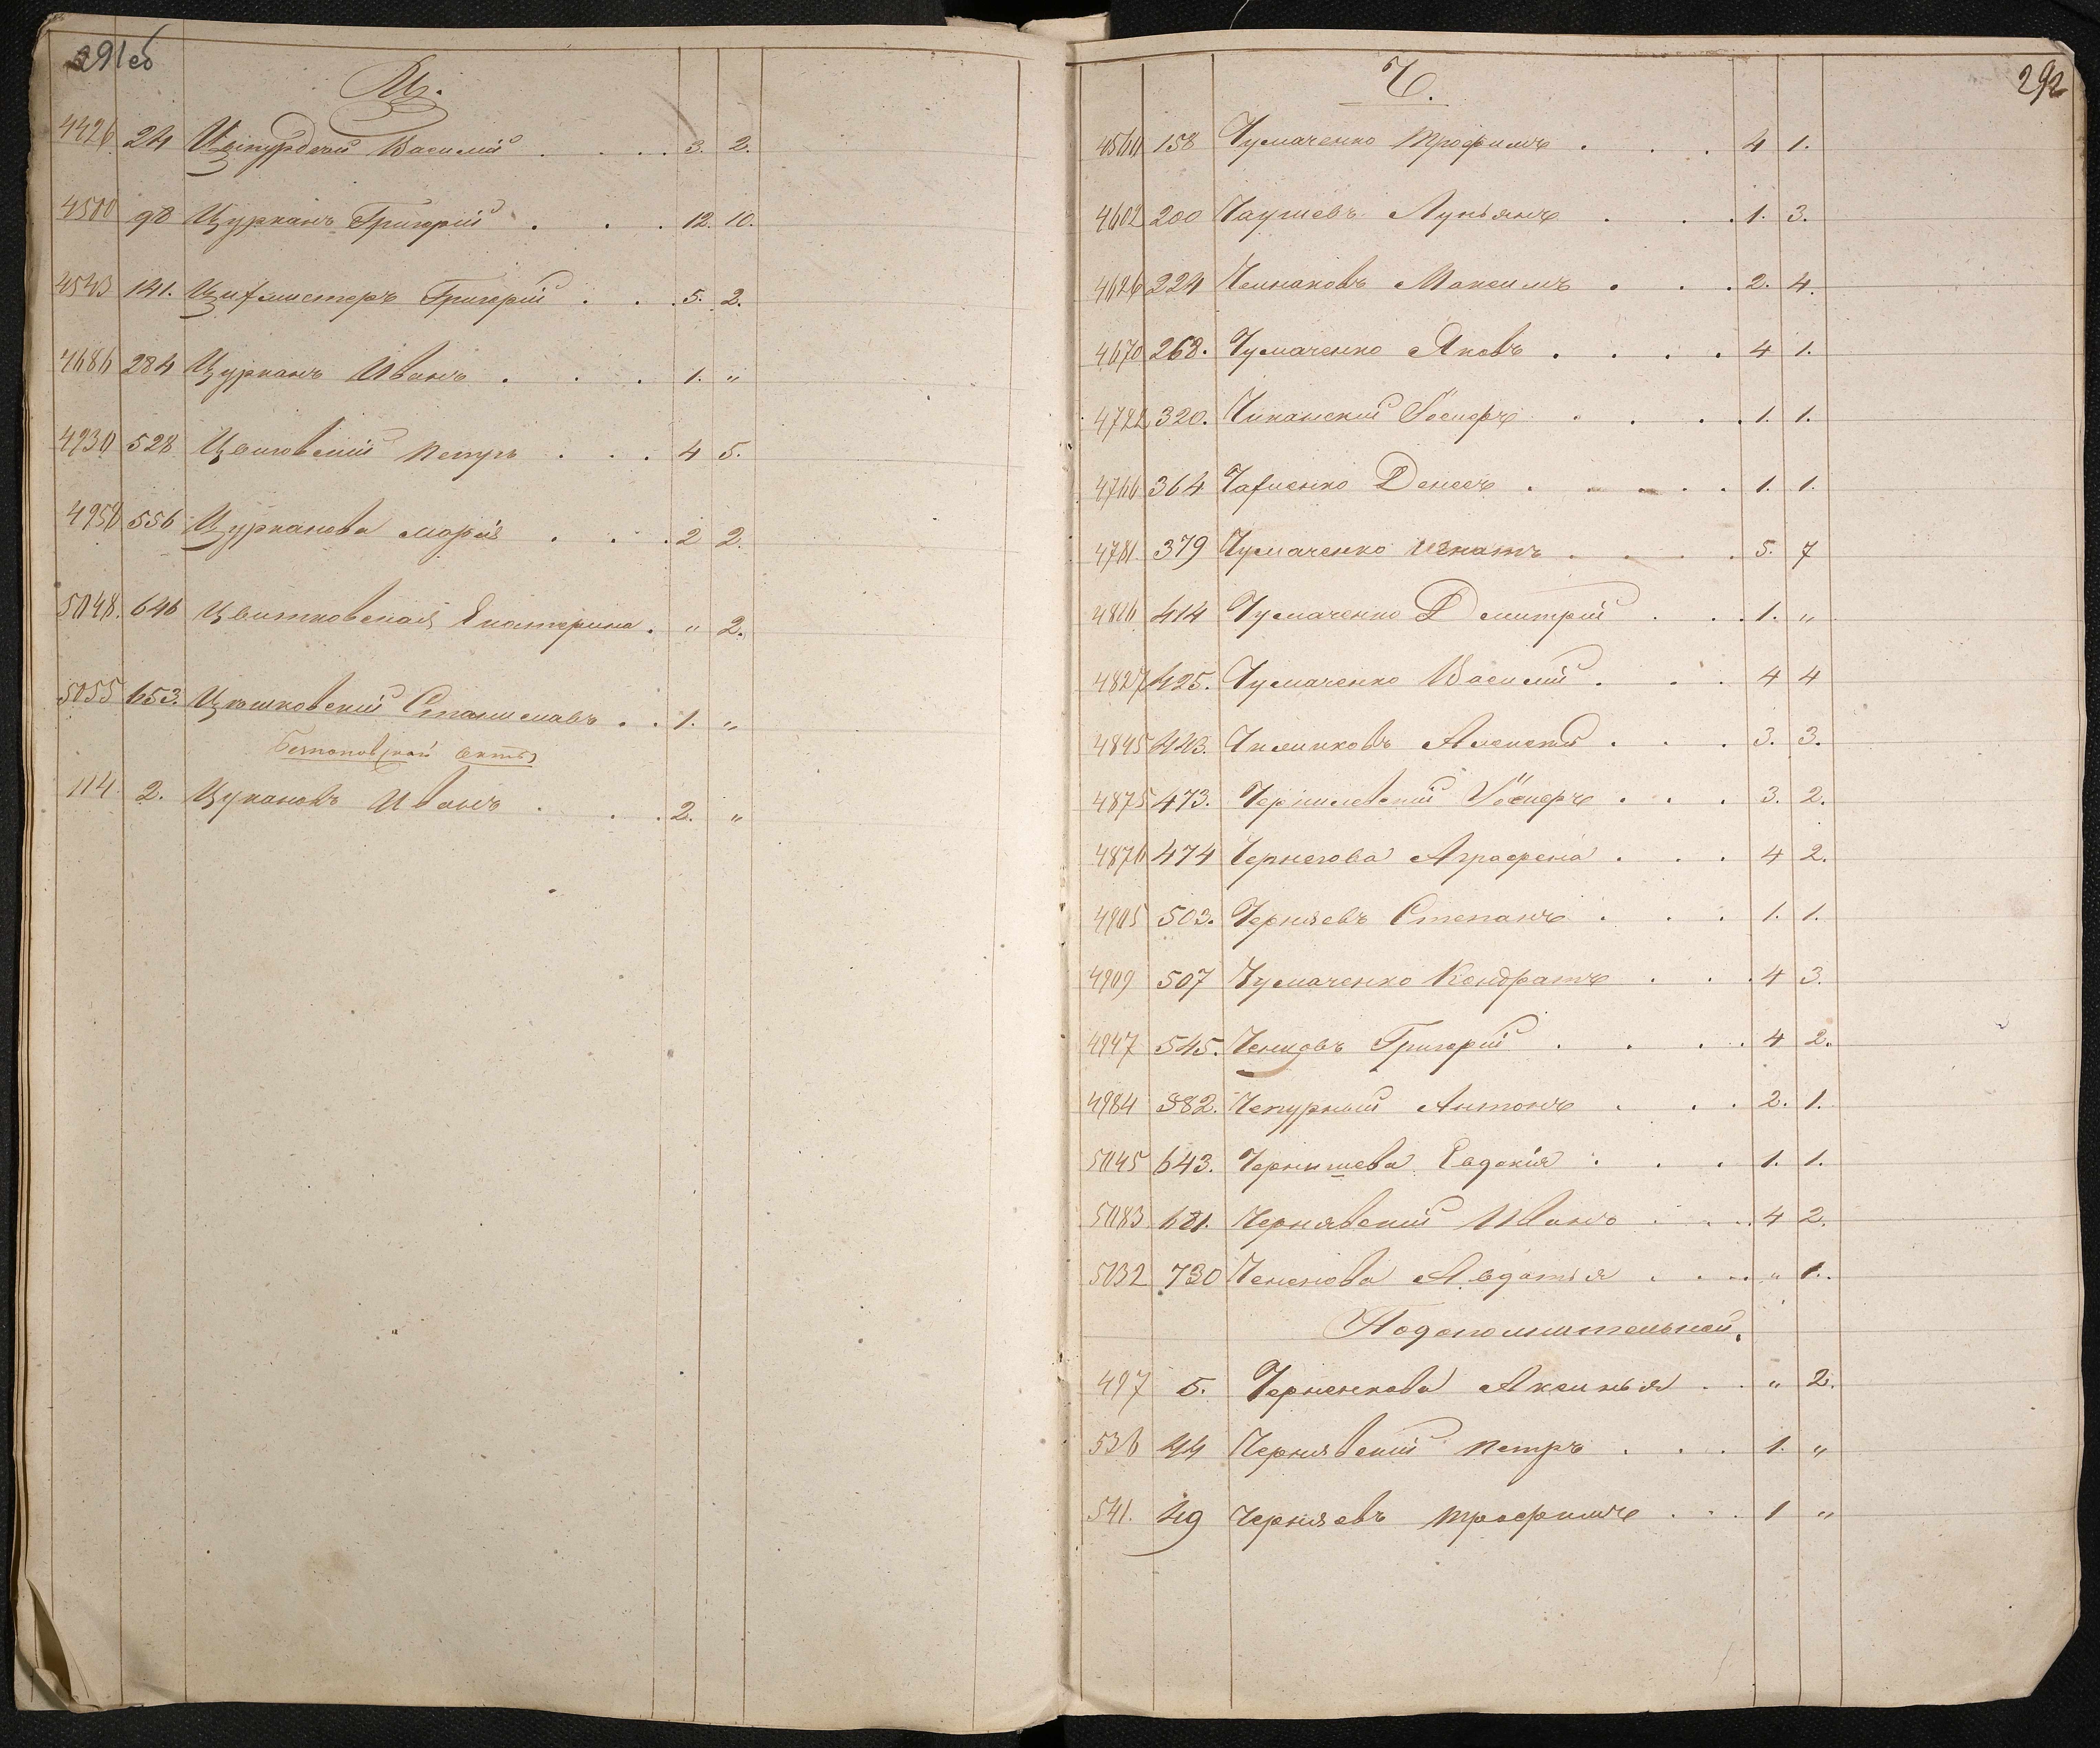 291 об
Ц.
4426 24 Василий . . . . 3. 2.
4500 98 Цурканъ Григорій . . . 12. 10.
4543 141. Григорій . . . 5. 2.
4686 284 Цурканъ Иванъ . . . 1. "
4930 528 Петръ . . . 4 5.
4958 556 Цурканова Марія . . . 2 2.
5048. 646 Цвитковская Екатерина . " 2.
5055 653. Цешковскій Станиславъ . . 1. "
114 2. Цукановъ Иванъ . . . 2. "
292
Ч.
4560 158 Чумаченко Трофимъ . . . 4 1.
4602 200 Лукьянъ . . . 1. 3.
4626 224 Максимъ . . . 2. 4.
4670 268. Чумаченко Яковъ . . . . 4 1.
4722 320. Чиканскій Іосифъ . . . . 1. 1.
4766 364 Денисъ . . . . . 1. 1.
4781 379 Чумаченко Игнатъ . . . . 5. 7
4816 414 Чумаченко Дмитрій . . . 1. "
4827 425. Чумаченко Василий . . . 4 4
4845 443. Чиликовъ Алексей . . . 3. 3.
4875 473. Іосифъ . . . 3. 2.
4876 474 Чернегова Аграфена . . . 4 2.
4905 503. Черняевъ Степанъ . . . 1. 1.
4909 507 Чумаченко Кондратъ . . . 4 3.
4947 545. Григорій . . . . 4 2.
4984 582. Чепурный Антонъ . . . 2. 1.
5045 643. Чернышева Евдокія . . . 1. 1.
5083 681. Чернявскій Иванъ . . . 4 2.
5132 730 Авдотья . . . " 1.
По дополнительной.
497 5. Черненкова Аксинья . . " 2.
536 44 Чернявскій Петръ . . . 1. "
541. 49 Черняевъ Трофимъ . . . 1 "